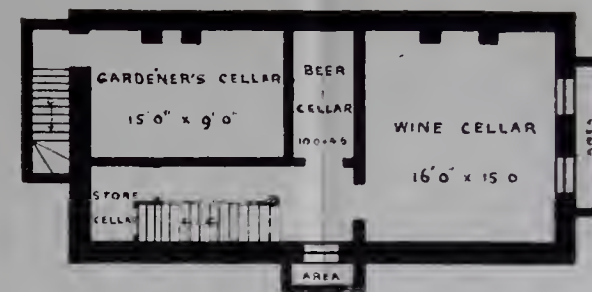 GARDENER'S CELLAR
15'0" x 9'0"
BEER
CELLAR
10 0 x 4 6
WINE CELLAR
16'0" x 15 0
AREA
STORE
CELLAR
AREA